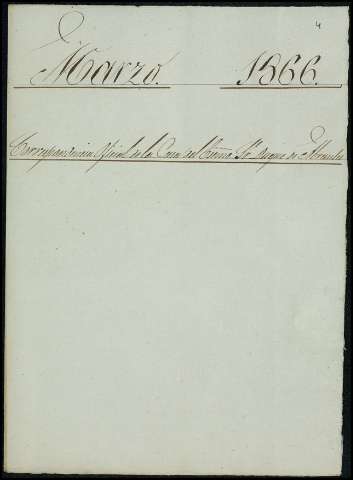 4
Marzo. 1866.
Correspondencia Oficial de la Casa del Excmo. Sr. Duque de Abrantes